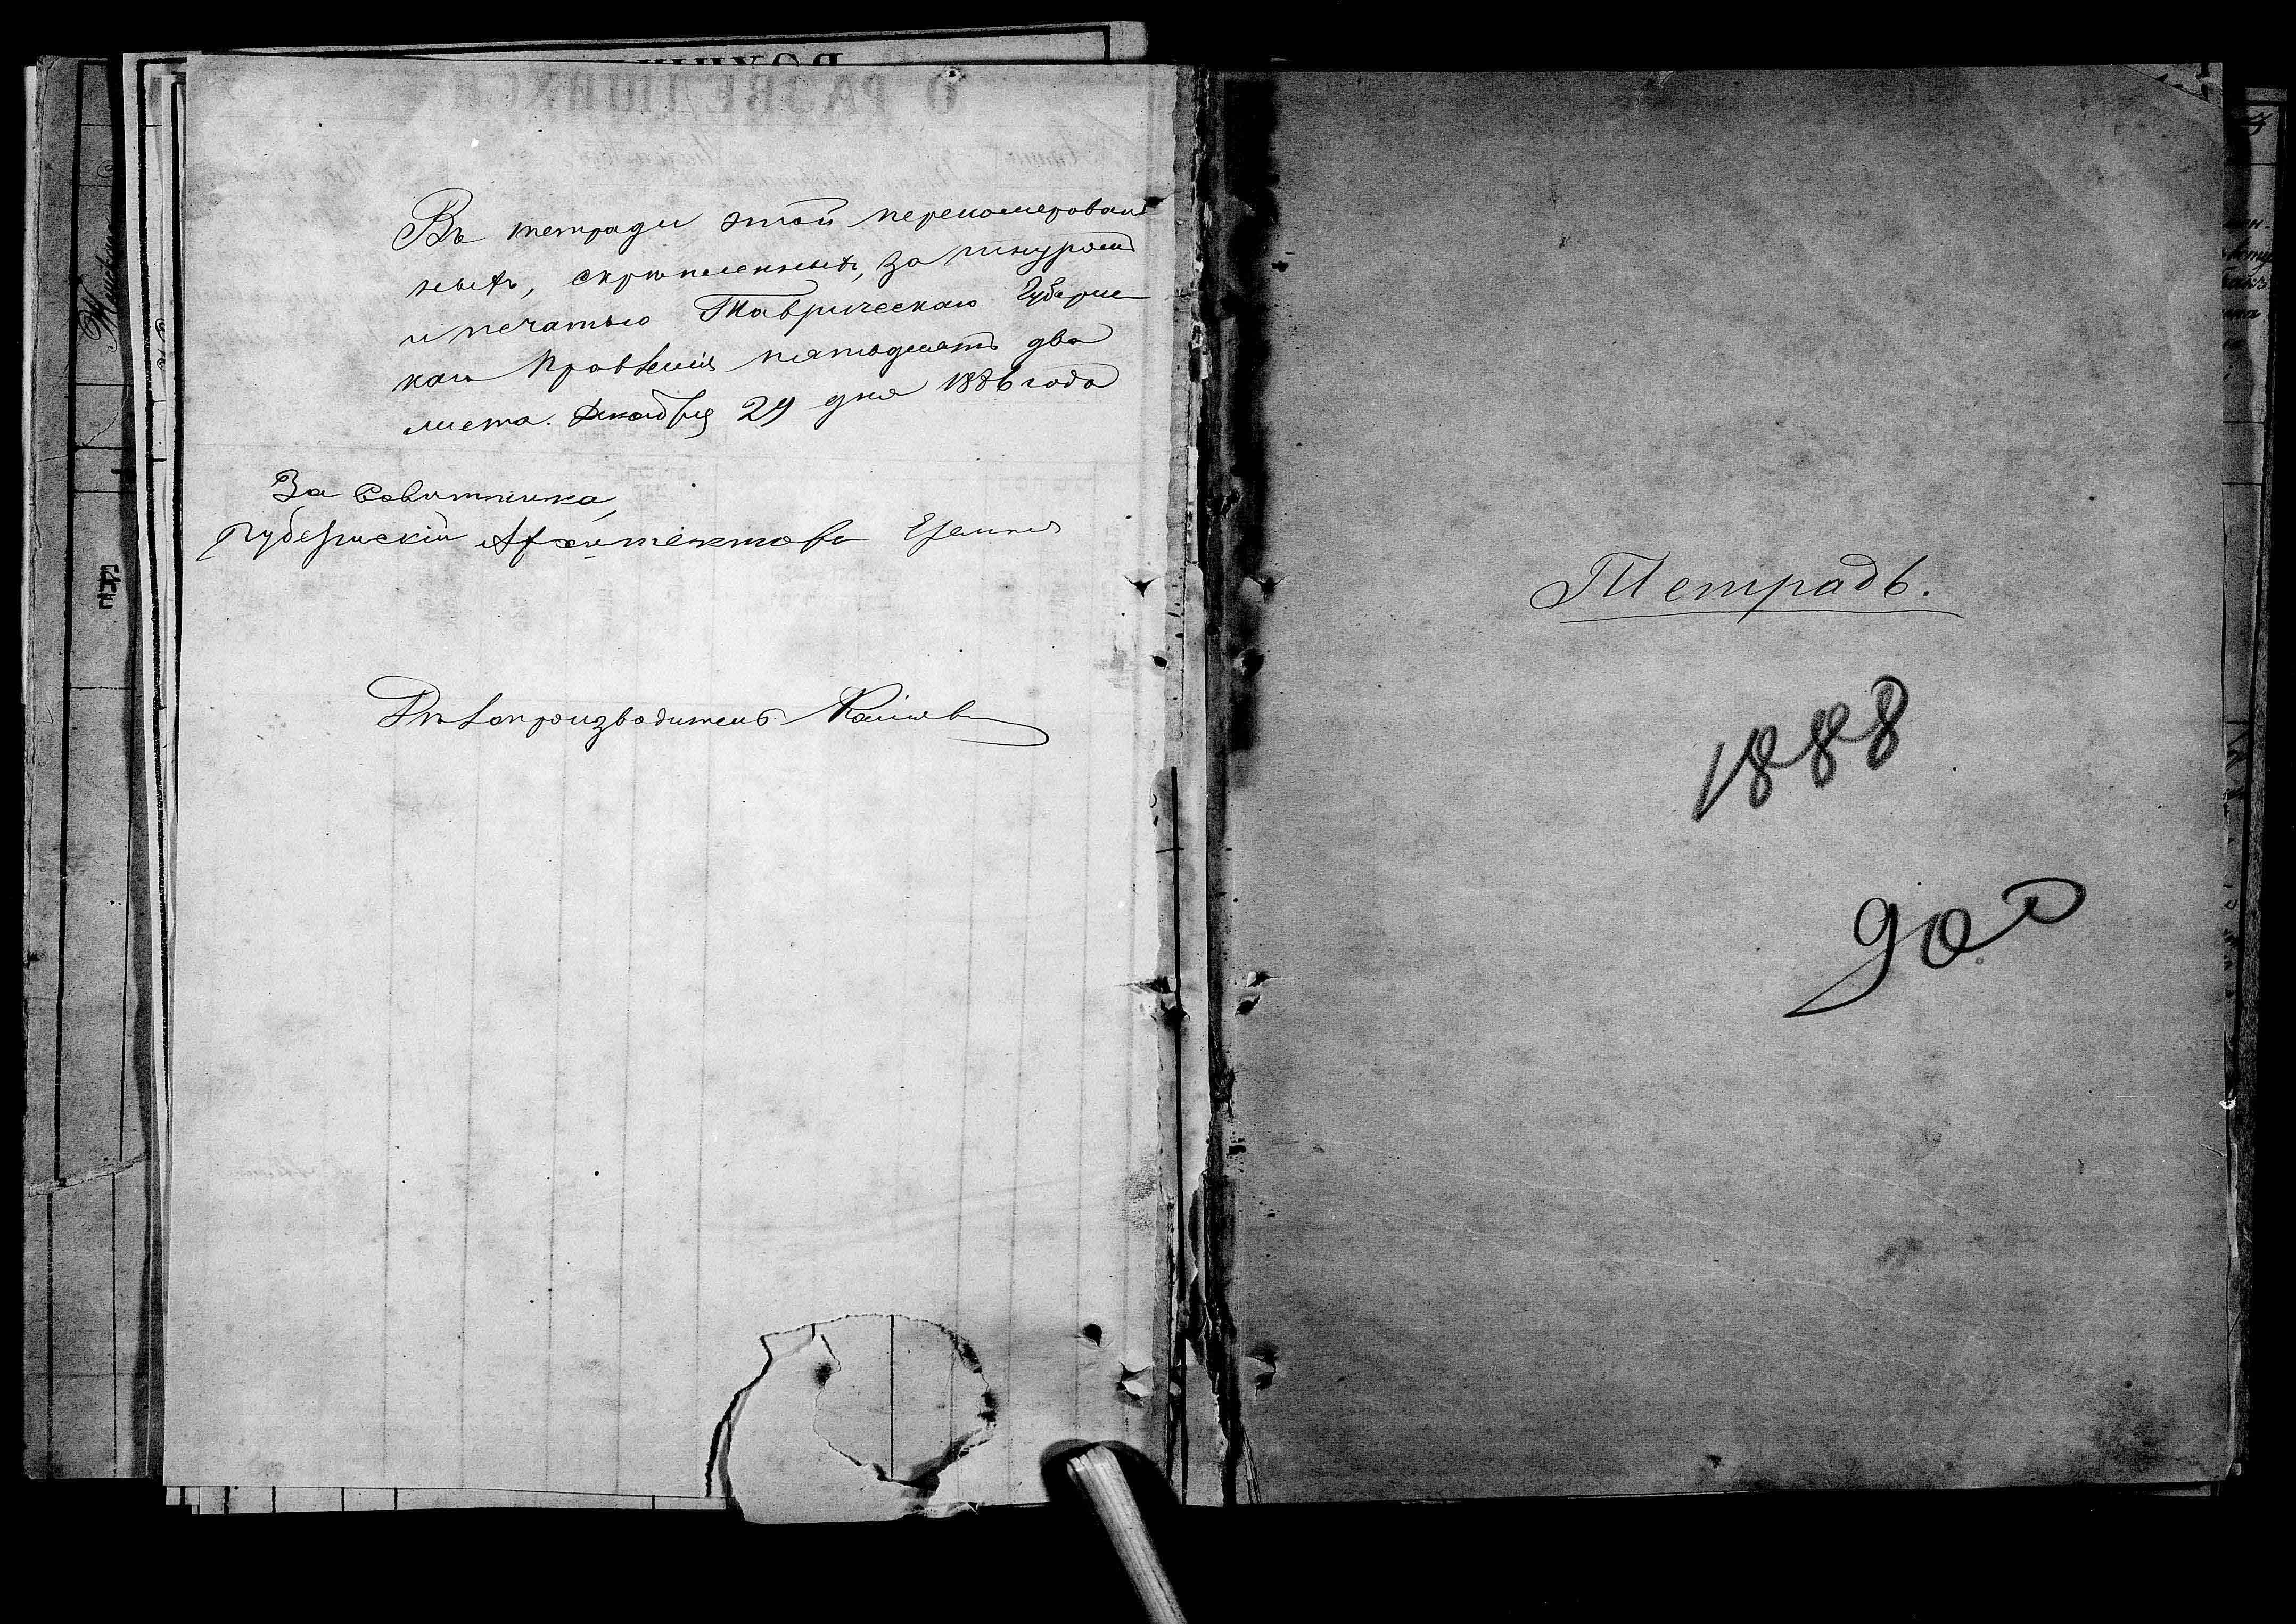 Въ тетради этой перенумерован
ныхъ, скрѣпленныхъ, за шнуромъ
и печатью Таврическаго Губернс
каго Правленія пятьдесятъ два
листа. Декабря 29 дня 1886 года
За Совѣтника,
Губернскій Архитекторъ
Дѣлопроизводитель
Тетрадь.
1888
900